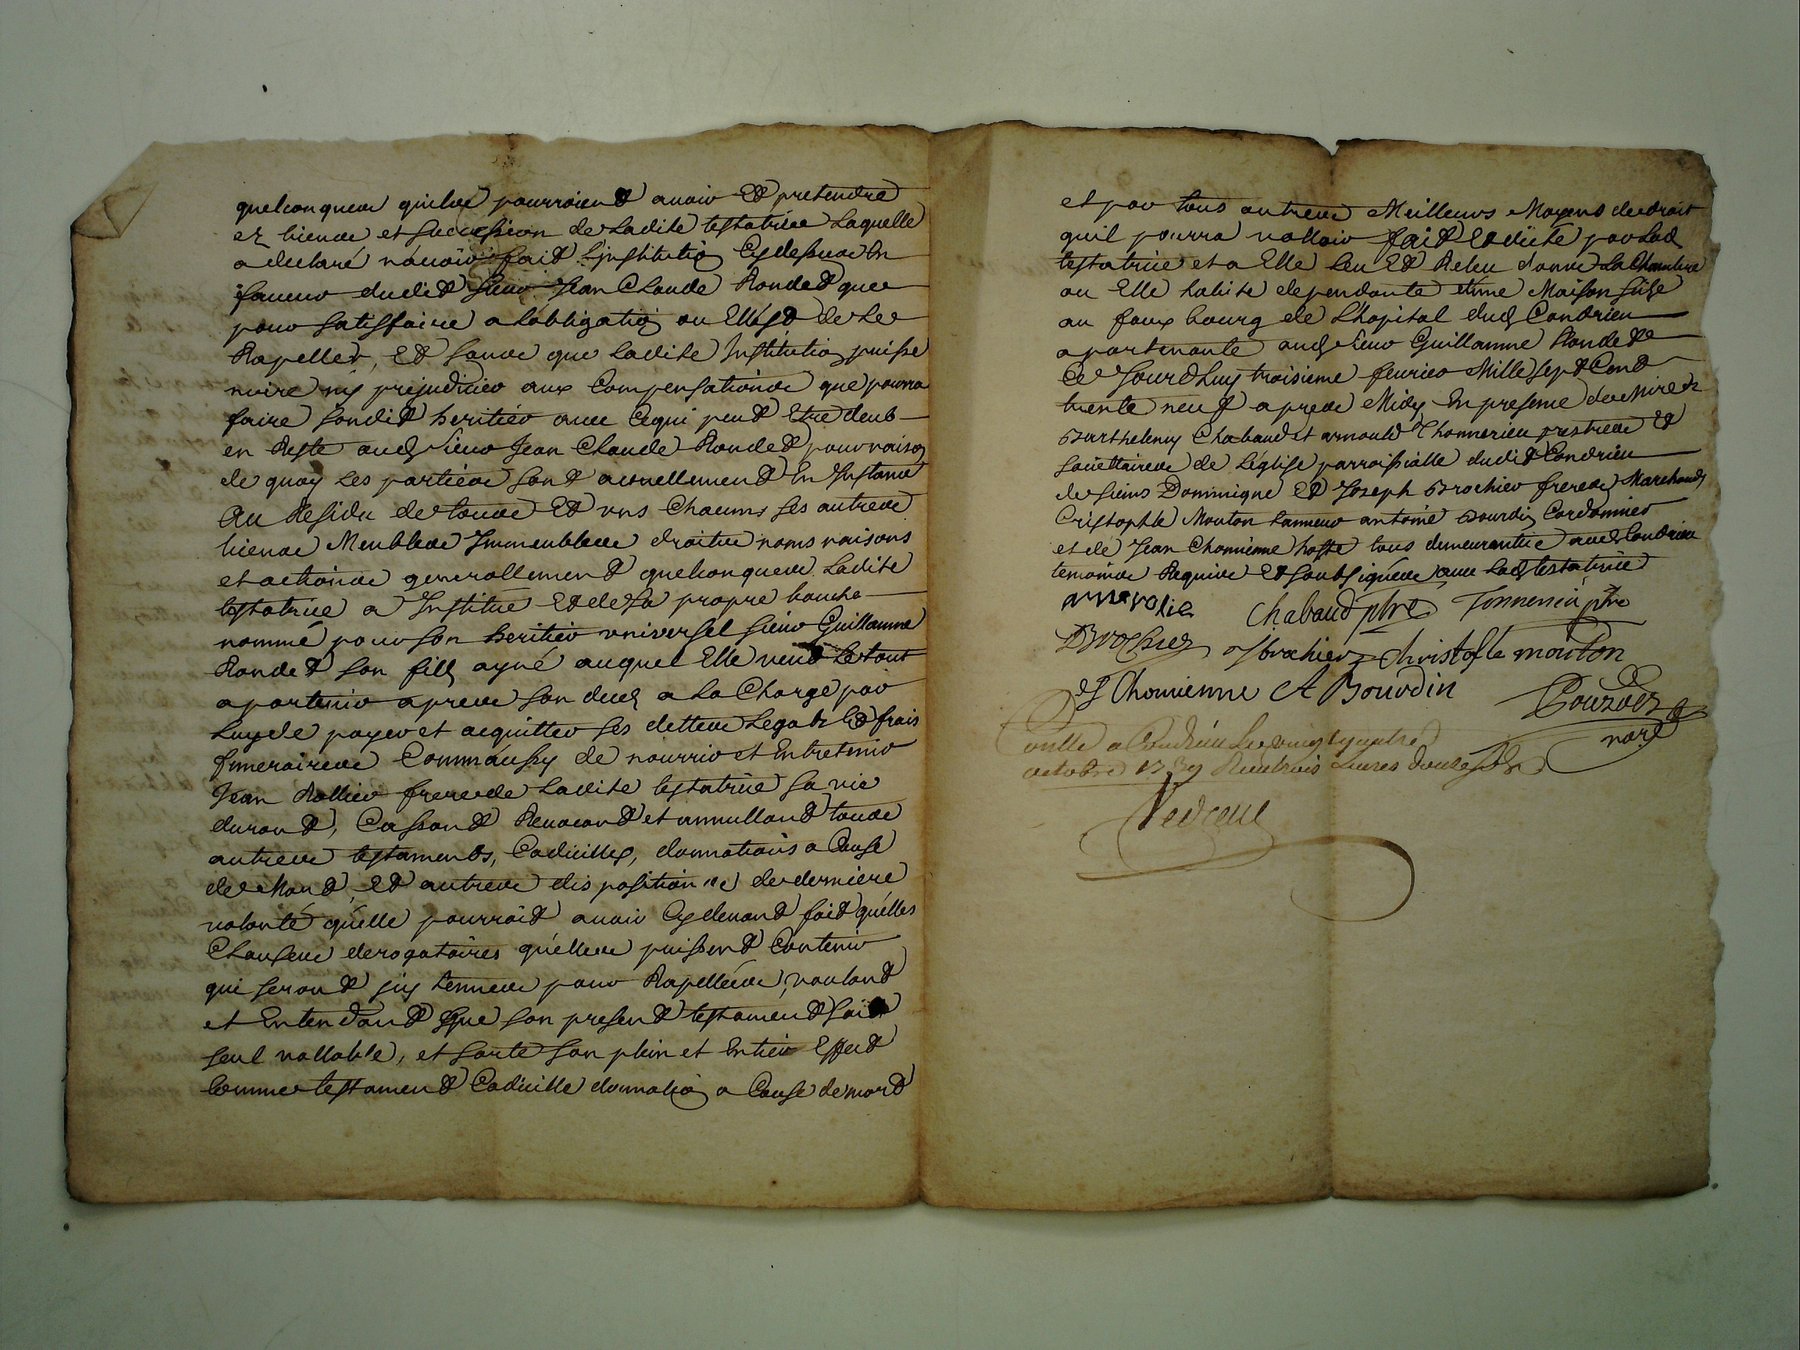 quelconques quilse pourroient avoir Et pretendre
ez biens et succession de ladite testatrice Laquelle
a declaré navoir fait Linstitution Cy dessus En
faveur dudit sieur Jean Claude Rondet que
pour satisfaire a Lobligation ou Elle est de Le
Rapeller, Et sans que ladite Institution puisse
nuire ny prejudicier aux Compensations que pourra
faire sondit heritier avec Ce qui peut Etre deub
en Reste aud sieur Jean Claude Rondet pour raison
de quoy Les parties sont actuellement En Instance
Au Residu de tous Et uns Chacuns ses autres
biens Meubles Immeubles droits noms raisons
et actions generallement quelconques Ladite
testatrice a Institué Et de sa propre bouche
nommé pour son heritier universel sieur Guillaume
Rondet son fils ayné auquel Elle veut Le tout
apartenir apres son deces a La Charge par
Luy de payer et acquitter ses dettes Legats Et frais
funeraires Comm'aussy de nourrir et Entretenir
Jean Rollier frere de Ladite testatrice sa vie
durant, Cassant Revocant et annullant tous
autres testaments, Codicilles, donnations a Cause
de Mort, Et autres dispositions de derniere
volonté qu'elle pourroit avoir Cy devant fait qu'elles
Clauses derogatoires qu'elles puissent Contenir
qui seront icy tenues pour Rapellées, voulant
et Entendant que son present testament soit
seul vallable, et sorte son plein et Entier Effect
Comme testament Codicille donnation a Cause de mort
et par tous autres Meilleurs Moyens de droit
quil pourra valloir fait Et dicté par Lad
testatrice et a Elle Leu Et Releu dans La Chambre
ou Elle habite dependante d'une Maison size
au faux bourg de L'hopital dud Condrieu
apartenante aud sieur Guillaume Rondet
Ce Jourdhuy troisieme fevrier Mille sept Cent
trente neuf apres Midy En presence de Mires
Barthelemy Chabaud et arnould Thonnerieu prestres Et
societtaires de L'église parroissialle dudit Condrieu
de sieurs Dominique Et Joseph Brochier freres Marchands
Cristophle Mouton tanneur antoine Bourdin Cordonnier
et de Jean Chomienne hoste tous demeurants aud Condrieu
temoins Requis Et soubsignés avec Lad testatrice
Chabaud ptre Tonnerieu ptre
Brochier J brochier Christofle mouton
J Chomienne A Bourdin
nore
octobre 1739 Reçu trois Livres douze sols